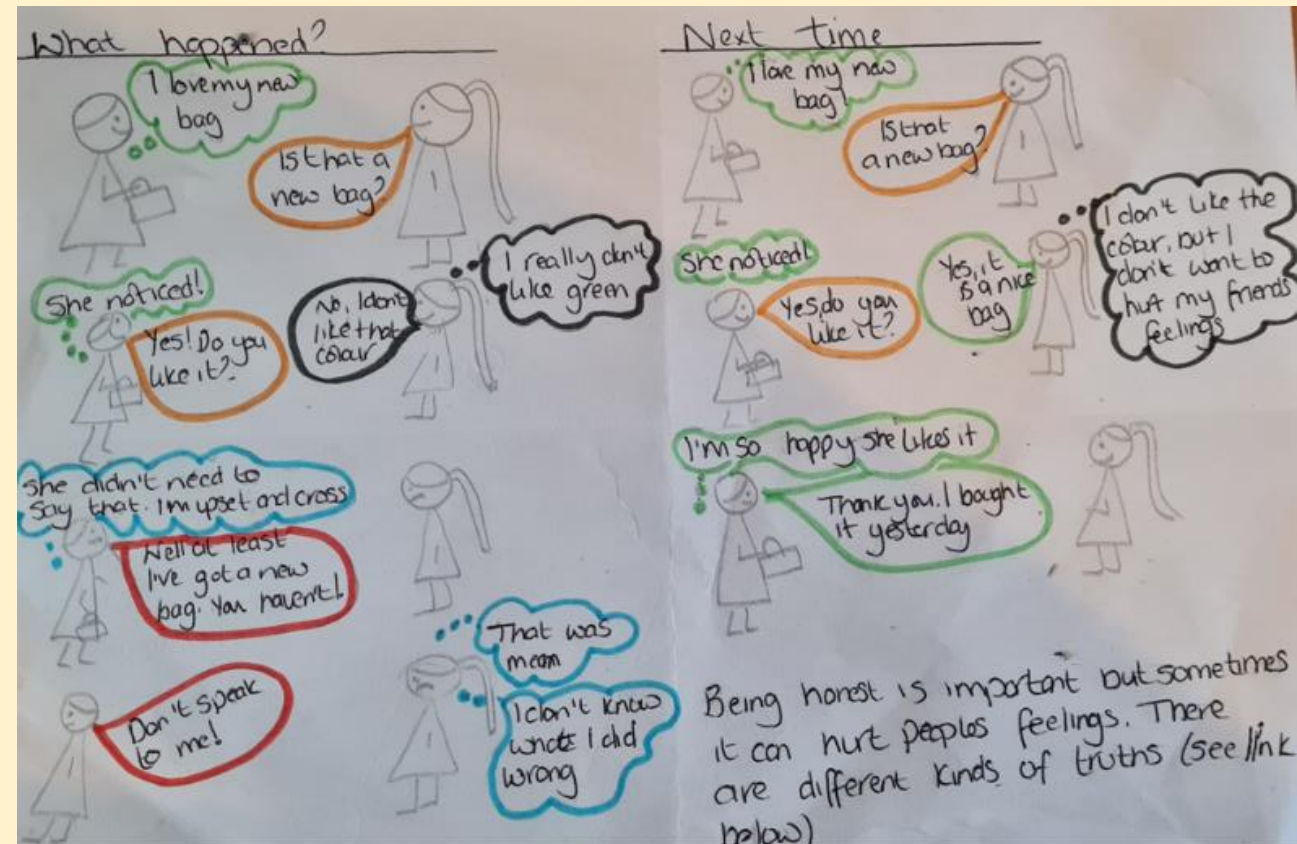 What happened?
I love my new
bag
Is that a
new bag?
She noticed!
Yes! Do you
like it?
No, I don't
like that
colour
I really don't
like green
She didn't need to
say that. I'm upset and cross
Well at least
I've got a new
bag. You haven't!
That was
mean
Don't speak
to me!
I don't know
what I did
wrong
Next time
I love my new
bag!
Is that
a new bag?
She noticed!
Yes, do you
like it?
Yes, it
is a nice
bag
I don't like the
colour, but I
don't want to
hurt my friends
feelings
I'm so happy she likes it
Thank you. I bought
it yesterday
Being honest is important but sometimes
it can hurt peoples feelings. There
are different kinds of truths (see link
below)